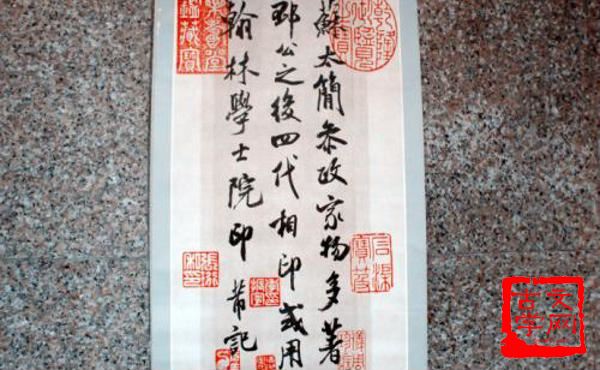 蘇太簡叅政家物多著
邳公之後四代相印或用
翰林學士院印 芾記
石渠寶笈
古文字网